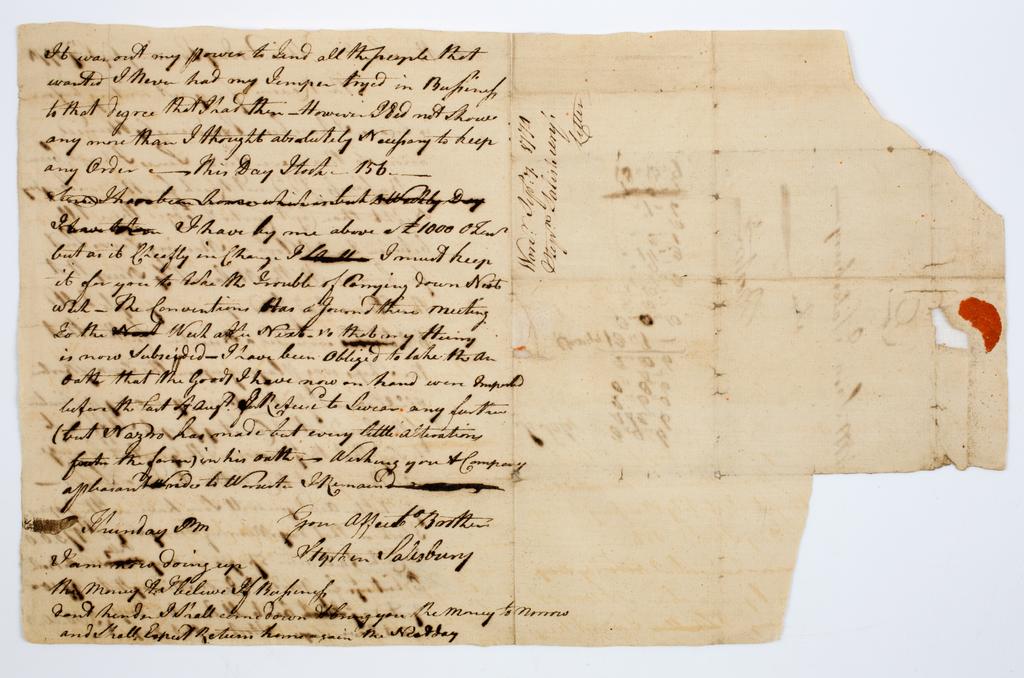 It was out my power to Send all the people that
wanted I Never had my Temper tryed in Bussiness
to that degree that I had then - However I did not Showe
any more than I thought absolutely Necessary to keep
any Order - This Day I took - 156 -
I have by me above £1000 O Ten
but as it Cheafly in Change I must keep
it for you to take the Trouble of Carrying down Next
week - The Conventions Has a journd there meeting
to the Week after Next - so that my Hurry
is now Subsided - I have been Obliged to take the an
oath that the Goods I have now on hand were Imported
before the last of Augt. I Refused to Swear any further
(but Nazro has made but every little alterations
in the form) in his oath - Wishing you & Company
a pleasant ride to Worcester I Remain
Thursday Pm Your Affect Brother
Stephen Salisbury
I am now doing up
the Money & I believe If Bussiness
dont hinder I shall come down & bring you the Money to Morrow
and Shall Expect Return home again the Next day
Stepn Salisbury's
Letter